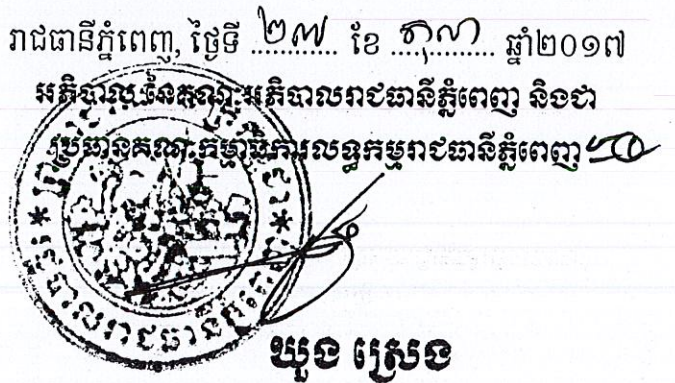 រាជធានីភ្នំពេញ, ថ្ងៃទី ២៧ ខែ តុលា ឆ្នាំ២០១៧
អភិបាល នៃគណៈអភិបាលរាជធានីភ្នំពេញ និងជា
ប្រធានគណៈកម្មាធិការលទ្ធកម្មរាជធានីភ្នំពេញ
ឃួង ស្រេង